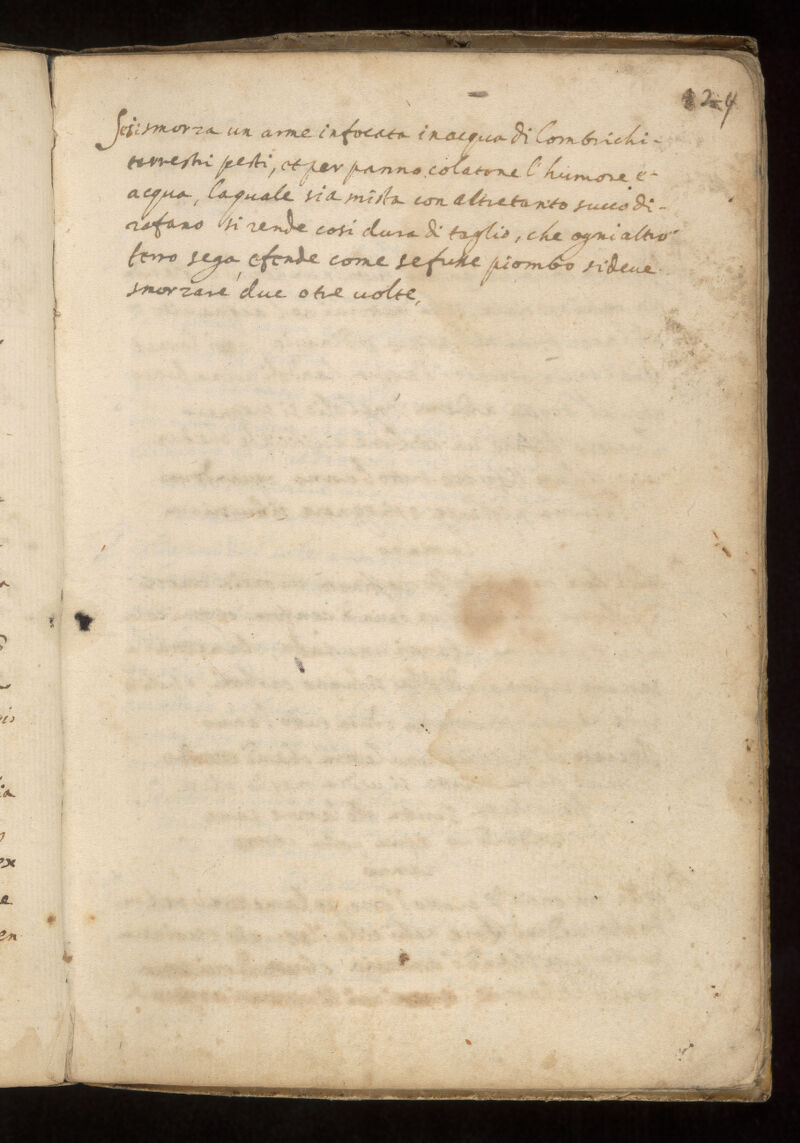 124
Se si smorza un arme infocata in acqua di lombrichi-
terrestri pesti, et per panno colatone l'humore e-
acqua, laquale sia mista con altretanto succo di-
rafano si rende così dura di taglio, che ogni altro
ferro sega e fende come se fusse piombo si deve
smorzare due o tre volte,
is
ia
ex
e
en